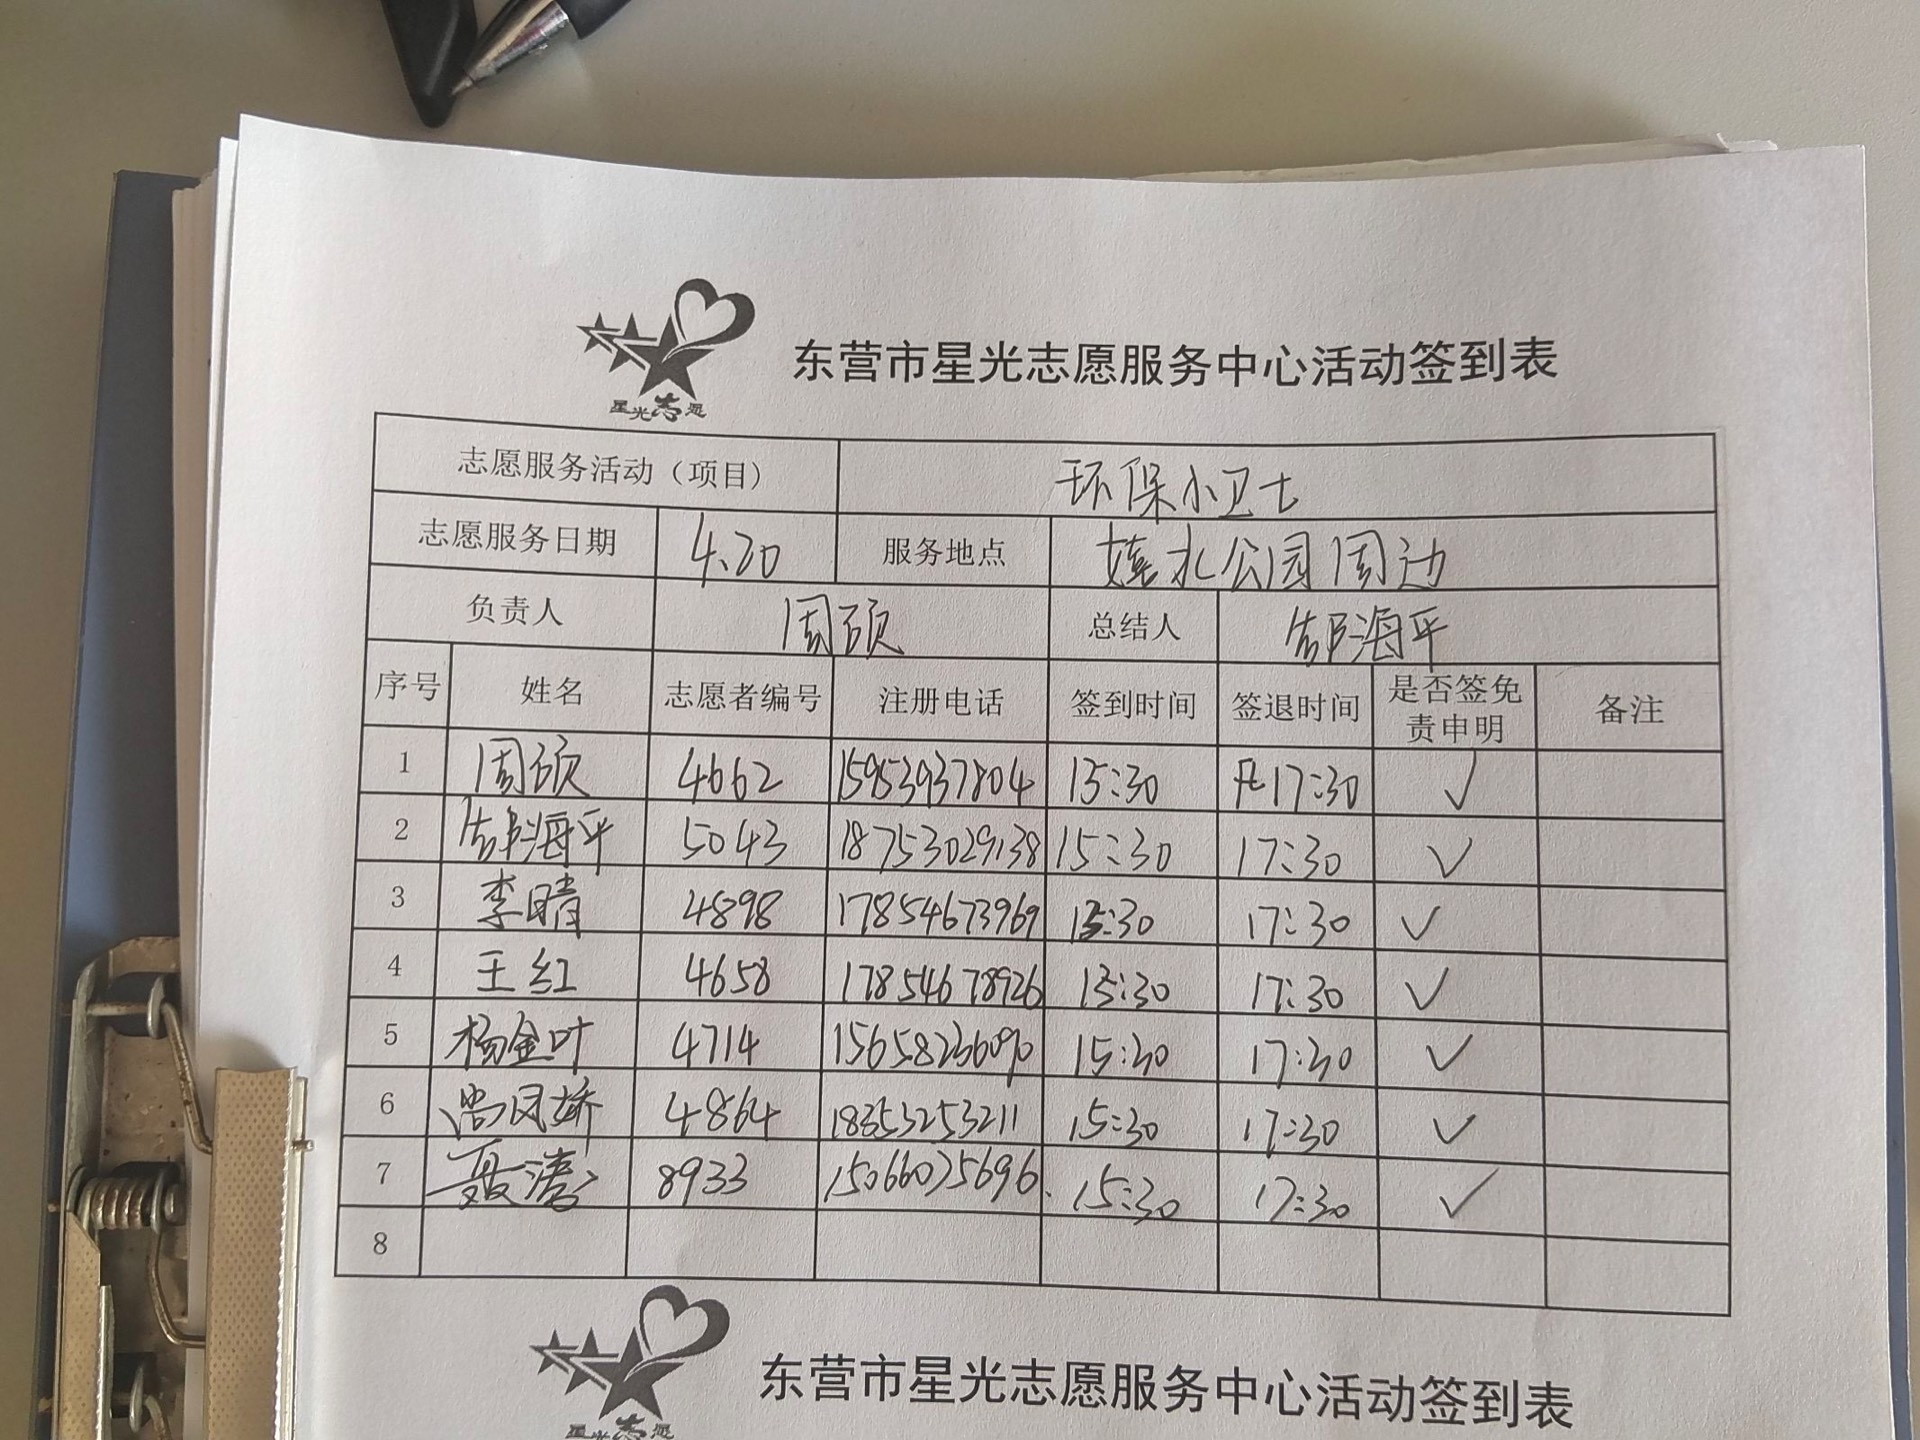 星光志愿
东营市星光志愿服务中心活动签到表
志愿服务活动（项目） 环保小卫士
志愿服务日期 4.20 服务地点 嬉水公园周边
负责人 周硕 总结人 郜海平
序号 姓名 志愿者编号 注册电话 签到时间 签退时间 是否签免责申明 备注
1 周硕 4662 15953937804 15:30 17:30 ✓
2 郜海平 5043 18753029138 15:30 17:30 ✓
3 李晴 4898 17854673969 15:30 17:30 ✓
4 王红 4658 17854678926 15:30 17:30 ✓
5 杨金叶 4714 15658236090 15:30 17:30 ✓
6 尚凤娇 4864 18353253211 15:30 17:30 ✓
7 聂涛 8933 15066075696 15:30 17:30 ✓
8
东营市星光志愿服务中心活动签到表
星光志愿